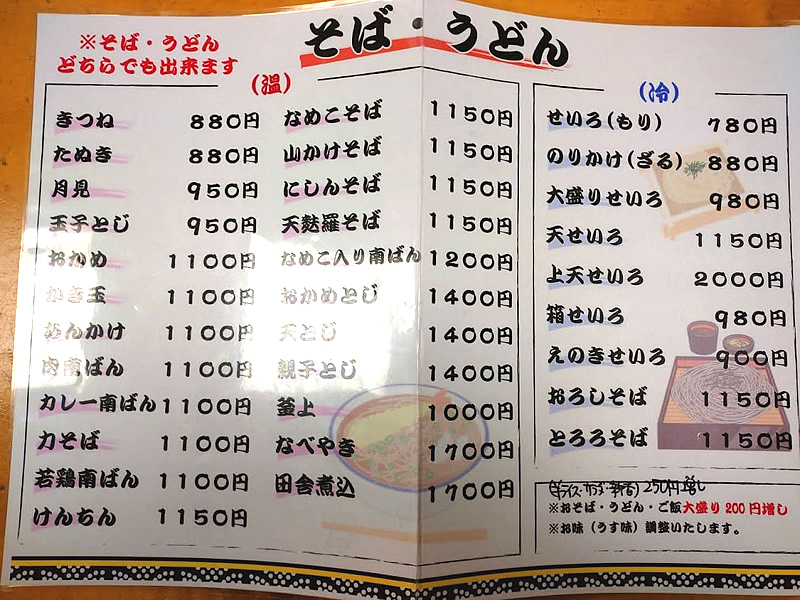 そば・うどん
※そば・うどん
どちらでも出来ます
(温)
きつね 880円
たぬき 880円
月見 950円
玉子とじ 950円
おかめ 1100円
かき玉 1100円
あんかけ 1100円
肉南ばん 1100円
カレー南ばん 1100円
力そば 1100円
若鶏南ばん 1100円
けんちん 1150円
なめこそば 1150円
山かけそば 1150円
にしんそば 1150円
天麩羅そば 1150円
なめこ入り南ばん 1200円
おかめとじ 1400円
天とじ 1400円
親子とじ 1400円
釜上 1000円
なべやき 1700円
田舎煮込 1700円
(冷)
せいろ(もり) 780円
のりかけ(ざる) 880円
大盛りせいろ 980円
天せいろ 1150円
上天せいろ 2000円
箱せいろ 980円
えのきせいろ 900円
おろしそば 1150円
とろろそば 1150円
250円増し
※おそば・うどん・ご飯大盛り200円増し
※お味(うす味)調整いたします。